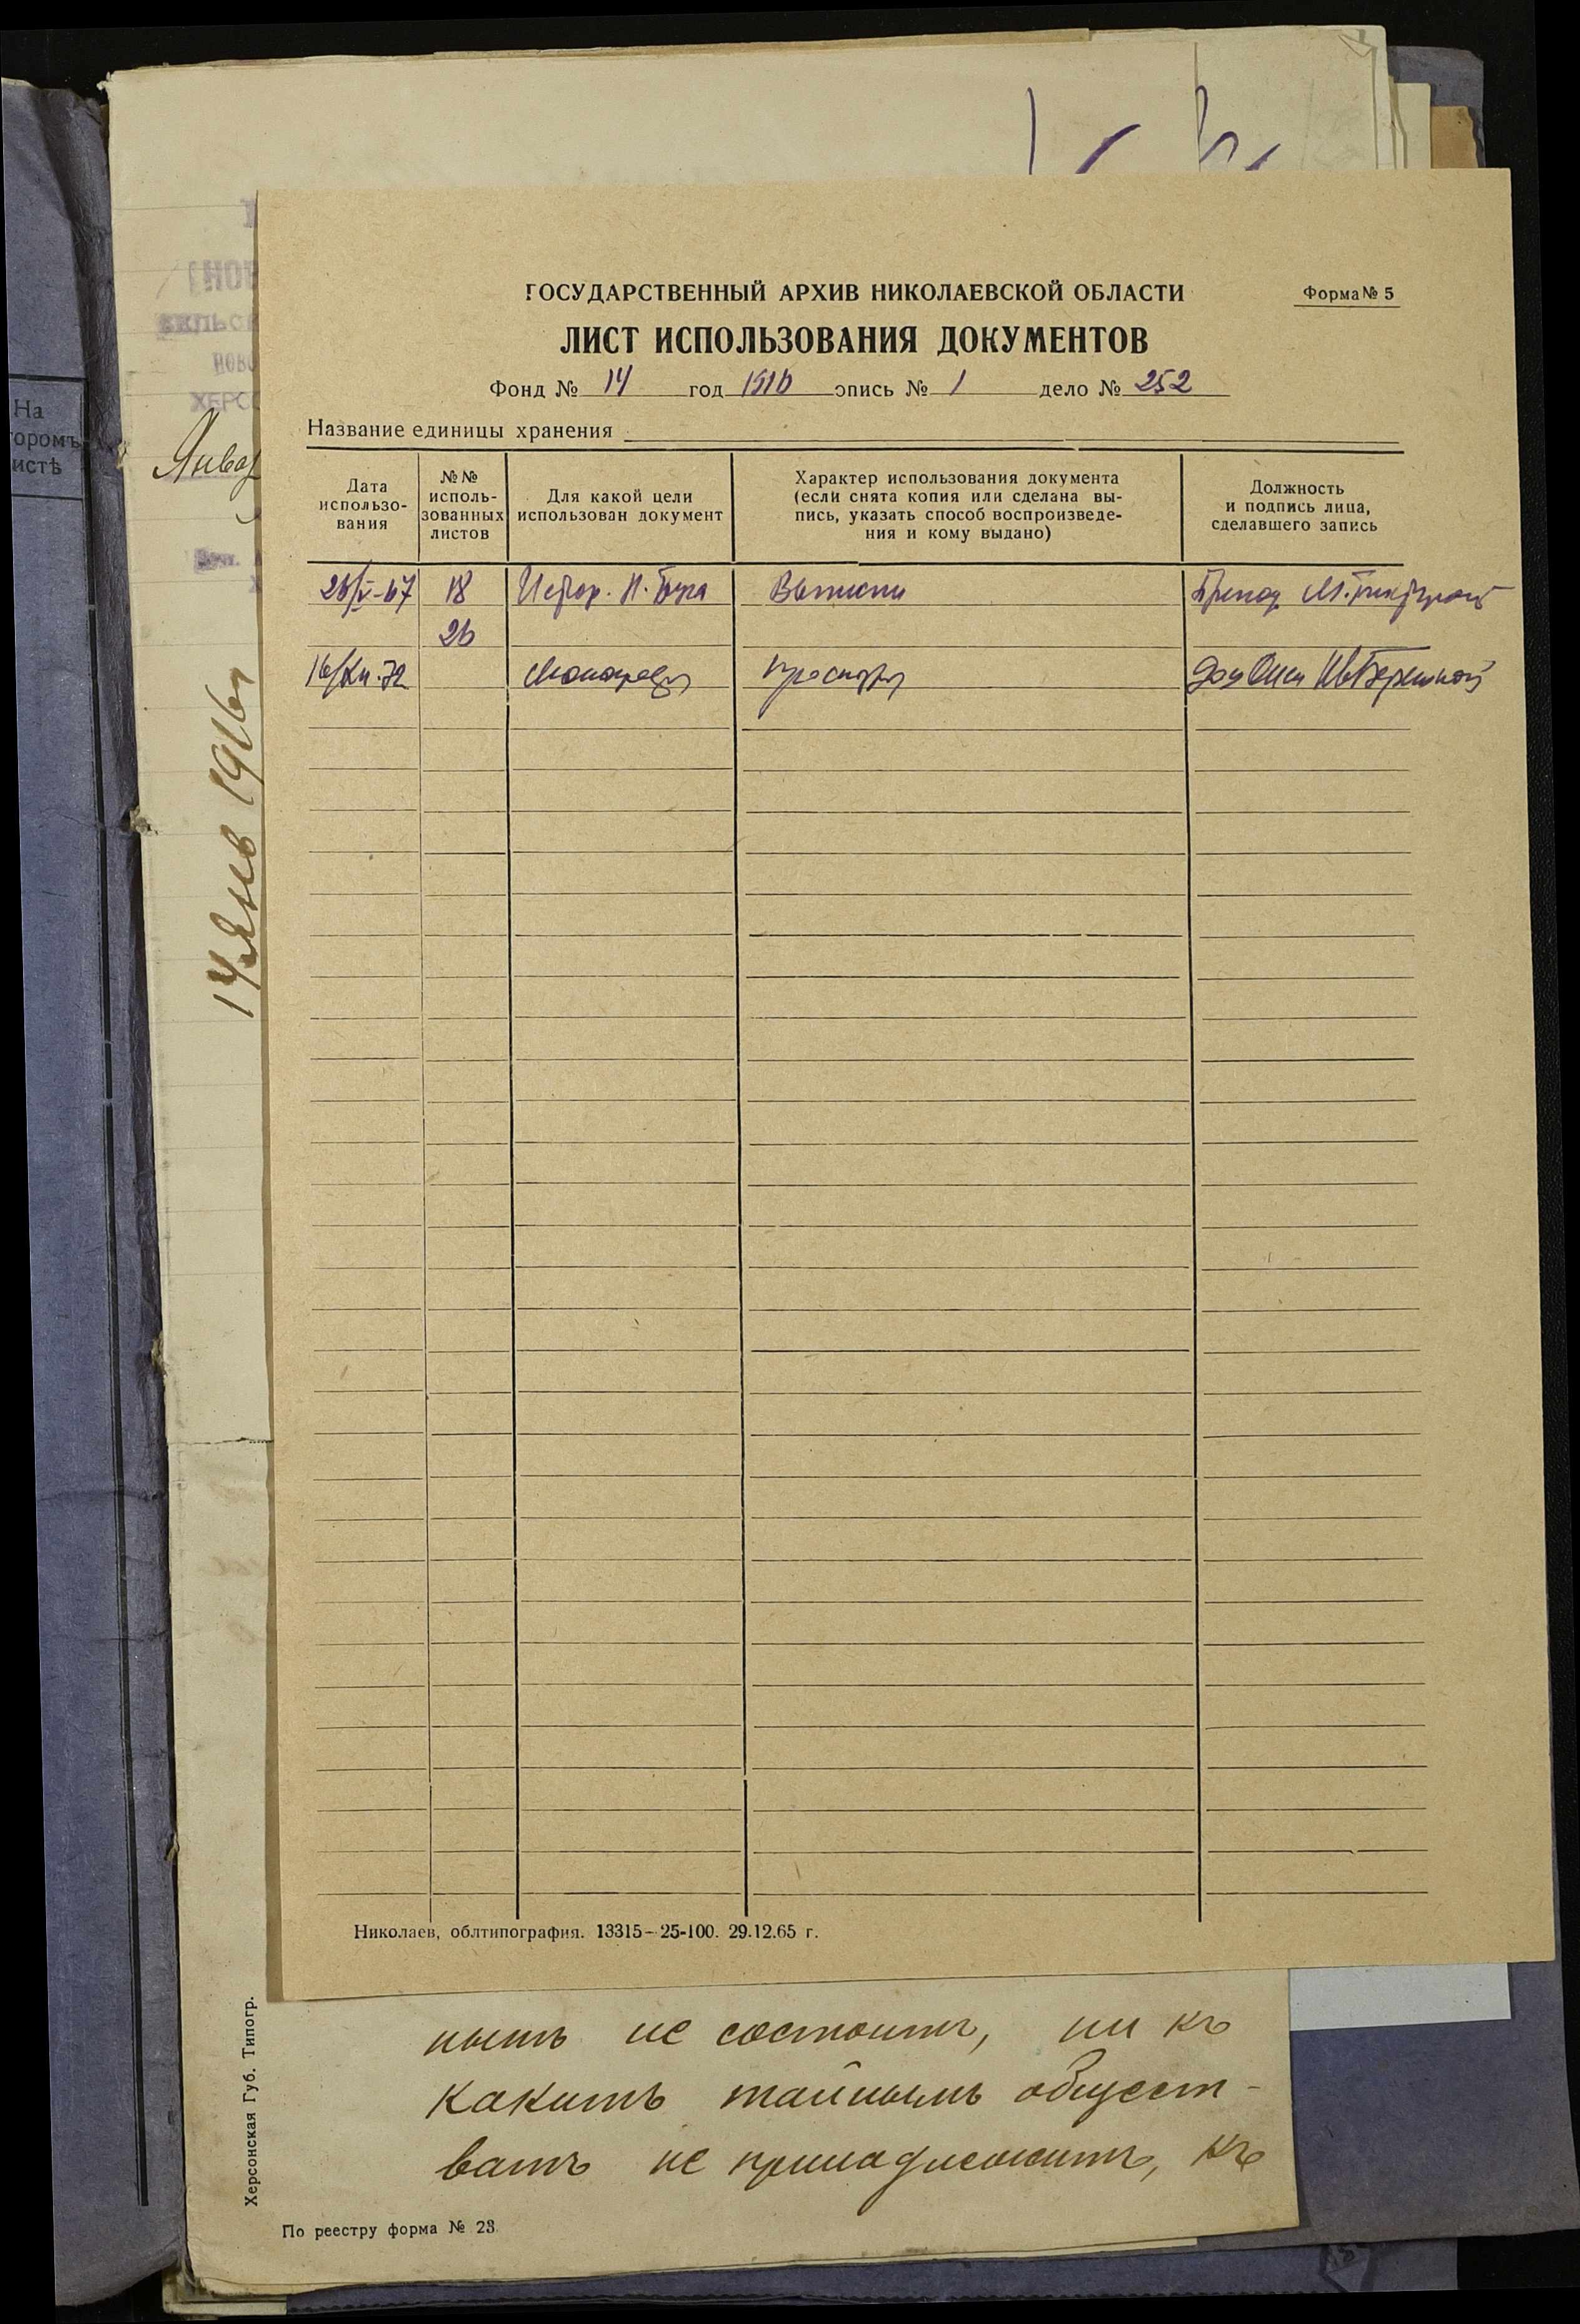 На
торомъ
истѣ
Январ
14 Янв 1916 г
ГОСУДАРСТВЕННЫЙ АРХИВ НИКОЛАЕВСКОЙ ОБЛАСТИ
Форма № 5
ЛИСТ ИСПОЛЬЗОВАНИЯ ДОКУМЕНТОВ
Фонд № 14 год 1916 опись № 1 дело № 252
Название единицы хранения
Дата
использо-
вания
№№
исполь-
зованных
листов
Для какой цели
использован документ
Характер использования документа
(если снята копия или сделана вы-
пись, указать способ воспроизведе-
ния и кому выдано)
Должность
и подпись лица,
сделавшего запись
26/V-67 18 Истор. Н. Буга Выписки
26
16/XII.72
Николаев, облтипография. 13315—25-100. 29.12.65 г.
нымъ не состоитъ, ни къ
какимъ тайнымъ общест-
вамъ не принадлежитъ, къ
Херсонская Губ. Типогр.
По реестру форма № 23.